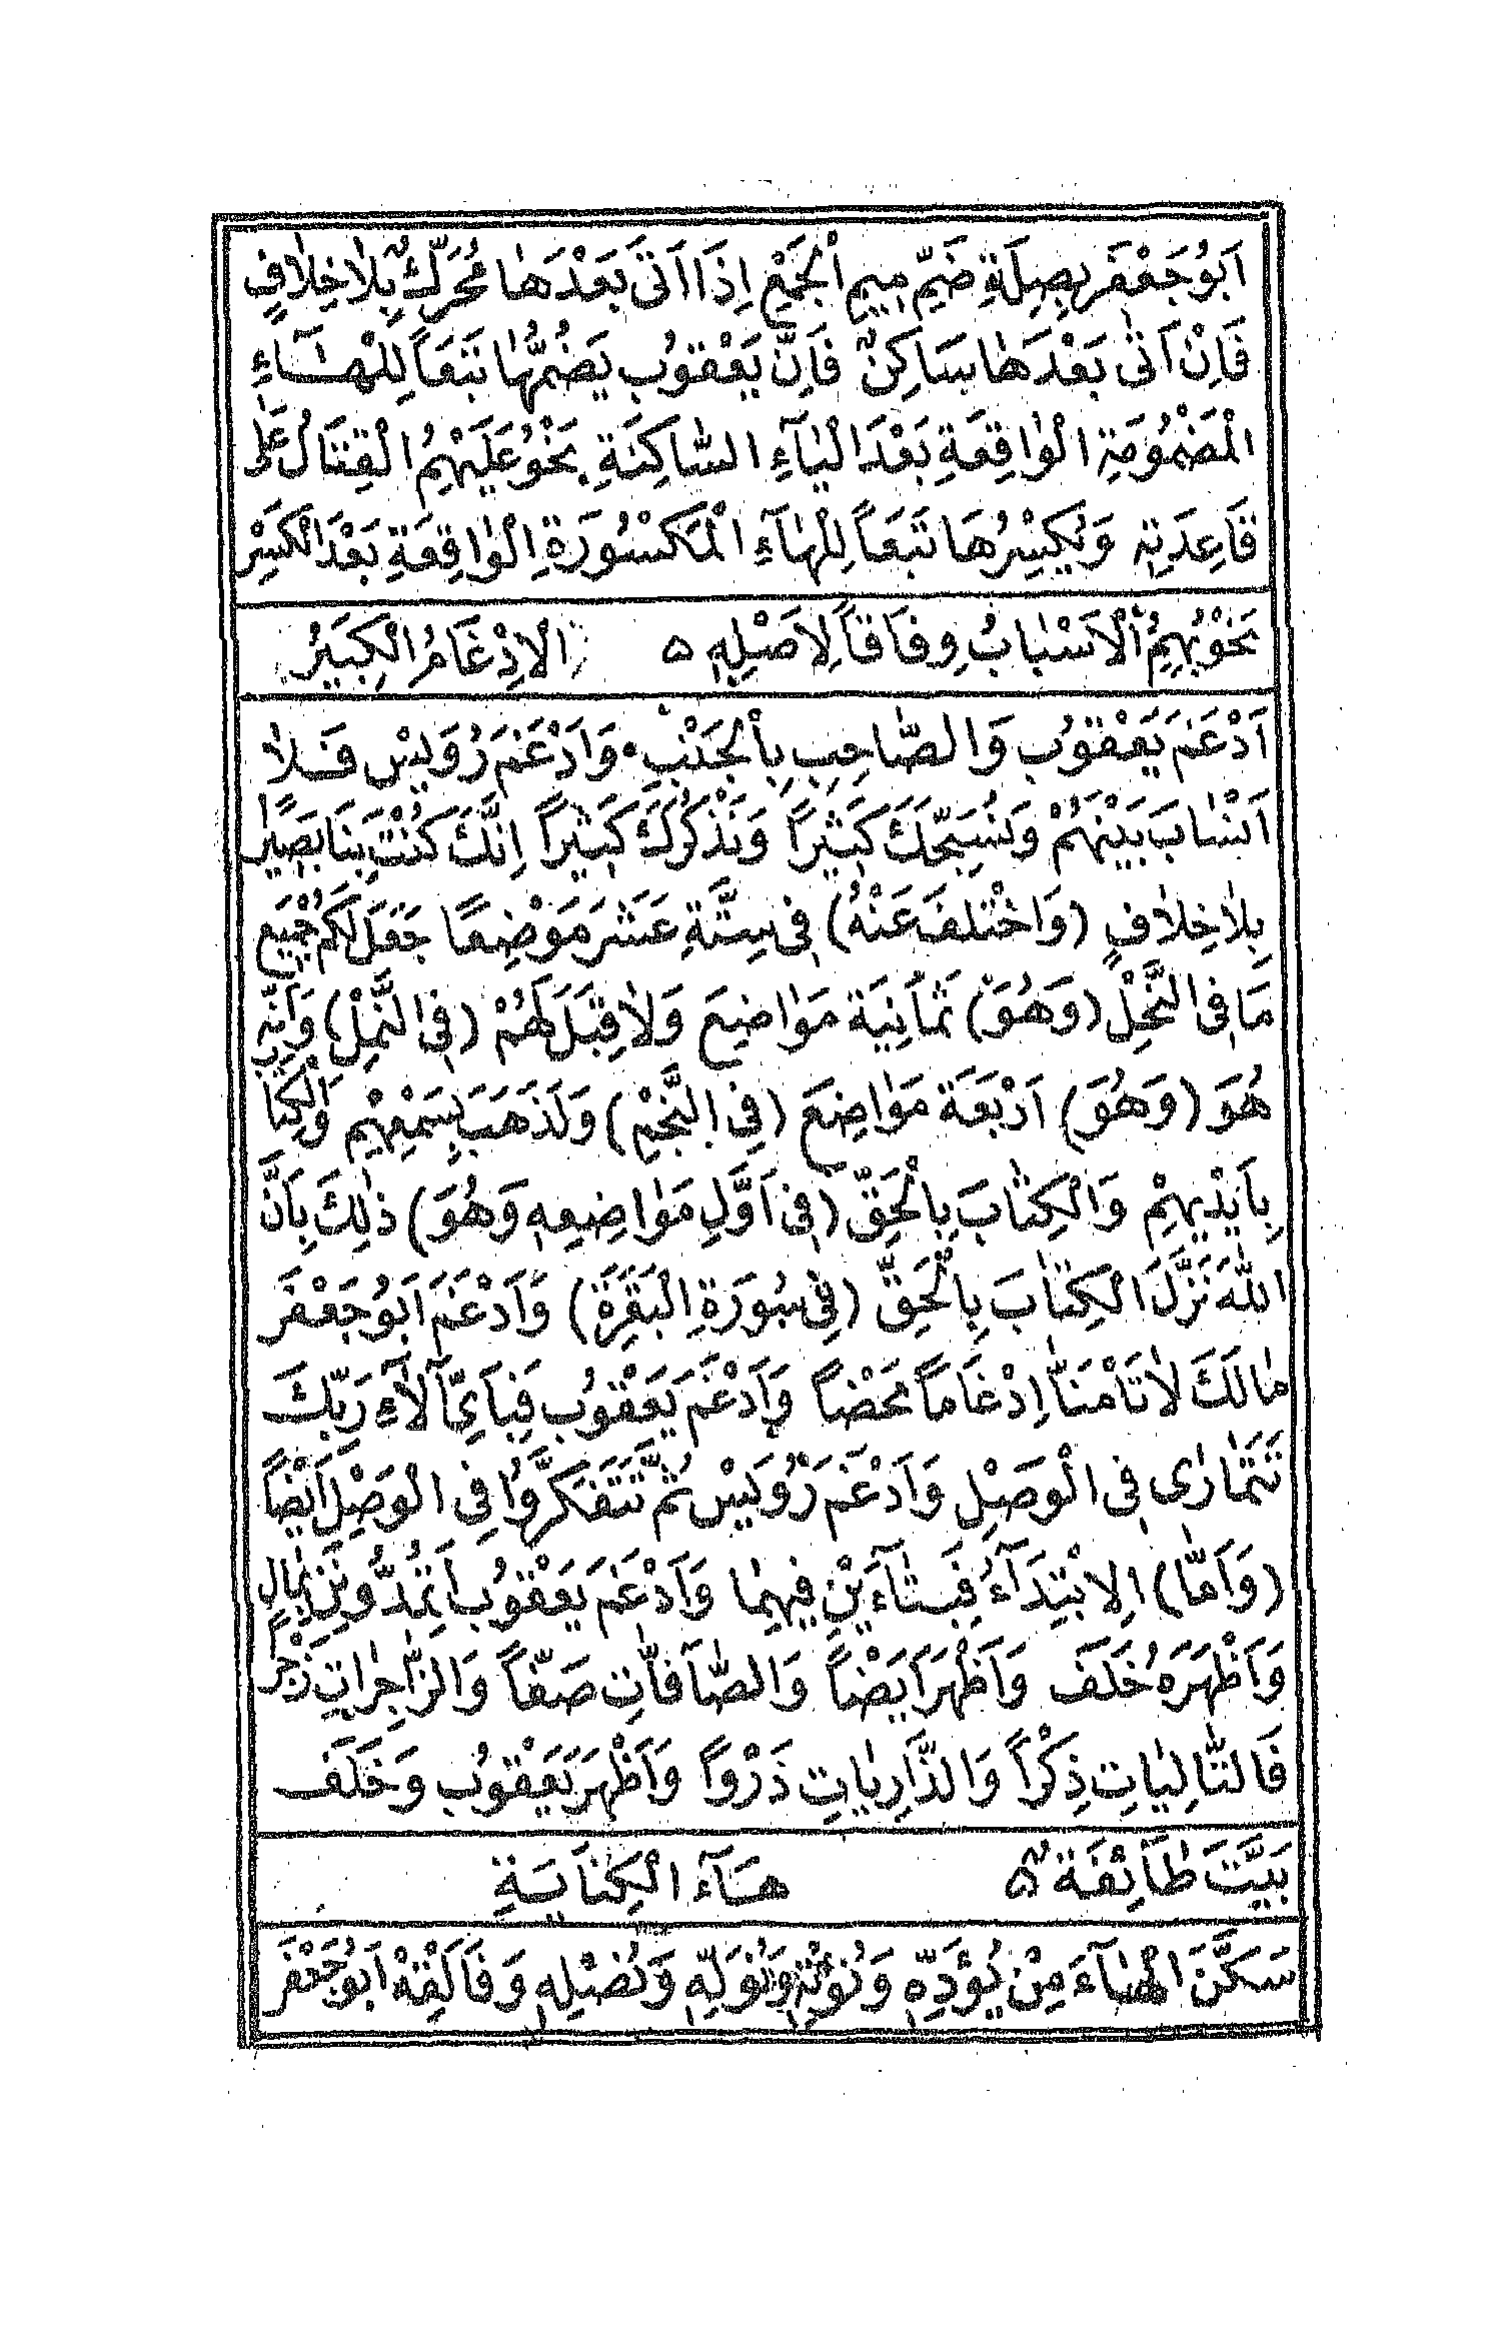 اَبُوْ جَعْفَرَ بِصِلَةِ ضَمِّ مِيْمِ الْجَمْعِ اِذَا اَتٰى بَعْدَهَا مُحَرَّكٌ بِلَا خِلَافٍ
فَاِنْ اَتٰى بَعْدَهَا سَاكِنٌ فَاِنَّ يَعْقُوْبَ يَضُمُّهَا تَبَعًا لِلْهَآءِ
الْمَضْمُوْمَةِ الْوَاقِعَةِ بَعْدَ الْيَآءِ السَّاكِنَةِ نَحْوُ عَلَيْهِمُ الْقِتَالُ عَلٰى
قَاعِدَتِهٖ وَيَكْسِرُهَا تَبَعًا لِلْهَآءِ الْمَكْسُوْرَةِ الْوَاقِعَةِ بَعْدَ الْكَسْرِ
نَحْوُ بِهِمُ الْاَسْبَابُ وِفَاقًا لِاَصْلِهٖ ۵ الْاِدْغَامُ الْكَبِيْرُ
اَدْغَمَ يَعْقُوْبُ وَالصَّاحِبِ بِالْجَنْبِ وَاَدْغَمَ رُوَيْسٌ فَلَا
اَنْسَابَ بَيْنَهُمْ وَنُسَبِّحَكَ كَثِيْرًا وَنَذْكُرَكَ كَثِيْرًا اِنَّكَ كُنْتَ بِنَا بَصِيْرًا
بِلَا خِلَافٍ (وَاخْتُلِفَ عَنْهُ) فِى سِتَّةِ عَشَرَ مَوْضِعًا جَعَلَ لَكُمْ جَمِيْعِ
مَا فِى النَّحْلِ (وَهُوَ) ثَمَانِيَة مَوَاضِيعَ وَلَا قِبَلَ لَهُمْ (فِى النَّمْلِ) وَاَنَّهٗ
هُوَ (وَهُوَ) اَرْبَعَة مَوَاضِعَ (فِى النَّجْمِ) وَلَذَهَبَ بِسَمْعِهِمْ وَالْكِتَا
بِاَيْدِيْهِمْ وَالْكِتَابَ بِالْحَقِّ (فِى اَوَّلِ مَوَاضِعِهٖ وَهُوَ) ذٰلِكَ بِاَنَّ
اللّٰهَ نَزَّلَ الْكِتَابَ بِالْحَقِّ (فِى سُوْرَةِ الْبَقَرَةِ) وَاَدْغَمَ اَبُوْ جَعْفَرَ
مَالَكَ لَا تَاْمَنَّا اِدْغَامًا مَحْضًا وَاَدْغَمَ يَعْقُوْبُ فَبِاَىِّ اٰلَآءِ رَبِّكَ
تَتَمَارٰى فِى الْوَصْلِ وَاَدْغَمَ رُوَيْسٌ ثُمَّ تَتَفَكَّرُوْا فِى الْوَصْلِ اَيْضًا
(وَاَمَّا) الِابْتِدَآءُ فَبِتَآءَيْنِ فِيْهِمَا وَاَدْغَمَ يَعْقُوْبُ اَتُمِدُّوْنَنِ بِمَالٍ
وَاَظْهَرَهُ خَلَفٌ وَاَظْهَرَ اَيْضًا وَالصَّآفَّاتِ صَفًّا وَالزَّاجِرَاتِ زَجْرًا
فَالتَّالِيَاتِ ذِكْرًا وَالذَّارِيَاتِ ذَرْوًا وَاَظْهَرَ يَعْقُوْبُ وَخَلَفٌ
بَيَّتَ طَآئِفَةٌ ۵ هَآءُ الْكِنَايَةِ
سَكَّنَ الْهَآءَ مِنْ يُؤَدِّهٖ وَنُؤْتِهٖ وَنُوَلِّهٖ وَنُصْلِهٖ وَفَاَلْقِهْ اَبُوْ جَعْفَرَ